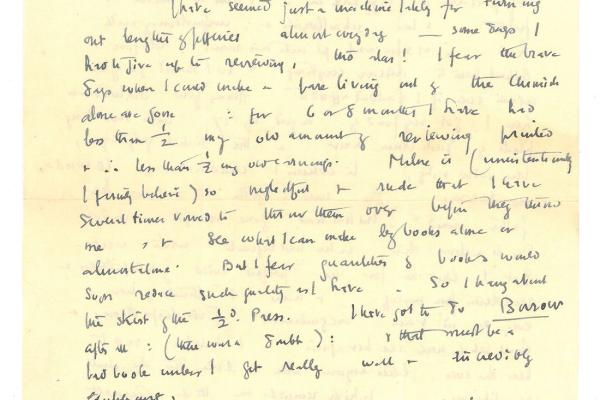 I have seemed just a machine lately for turning
out lengths of           almost everyday — some days I
have to give up to reviewing,      alas! I fear the brave
days when I could make a bare living out of the Chronicle
alone are gone : for 6 or 8 months I have had
less than ½ my old amount of reviewing printed
+ ∴ less than ½ my old earnings. Milne is (unintentionally
I firmly believe) so neglectful + rude that I have
several times vowed to throw them over before they throw
me, + see what I can make by books alone or
almost alone. But I fear quantities of books would
soon reduce such quality as I have. So I hang about
the skirt of the ½d. Press. I have got to do Borrow
after all : (there was a doubt) : + that must be a
bad book unless I get really well + incredibly